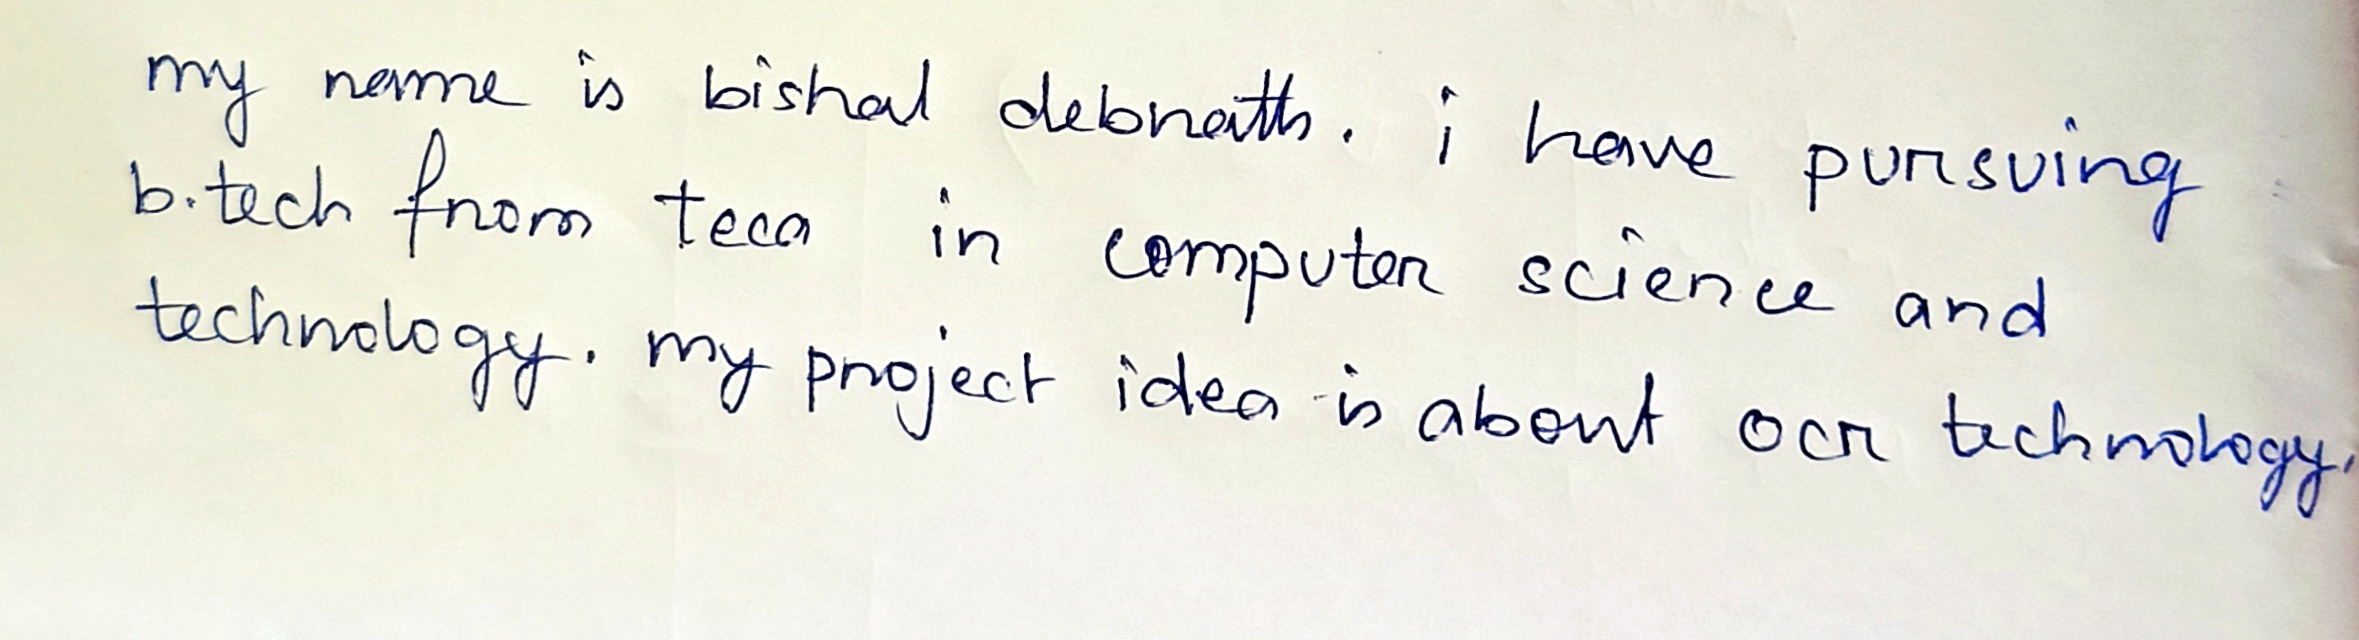 my name is bishal debnath. i have pursuing
b.tech from teca in computer science and
technology. my project idea is about ocr technology.